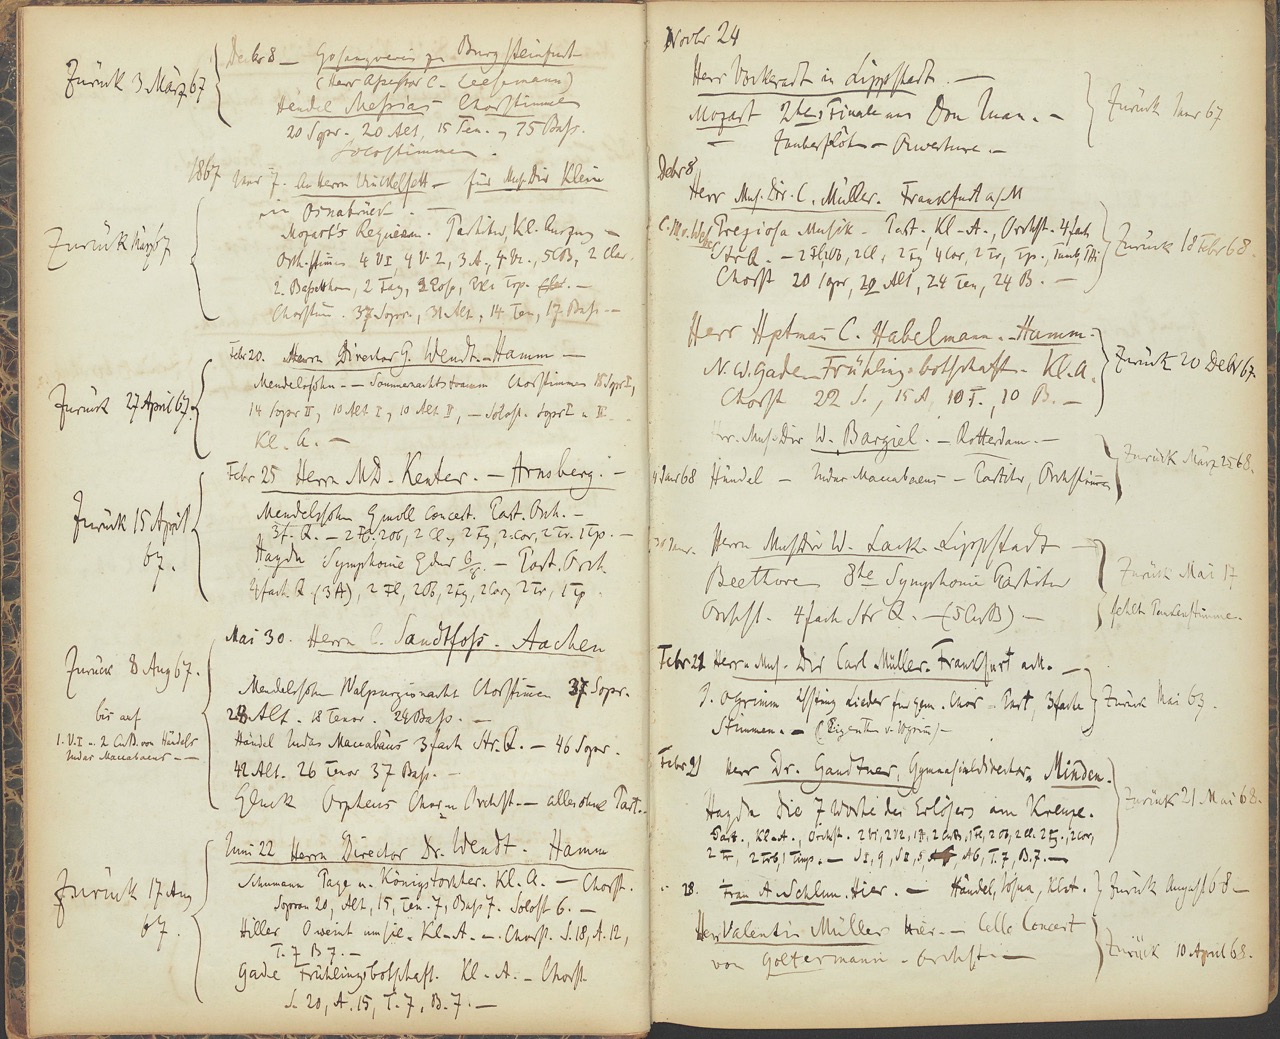 Zurück 3 März 67
Decbr 8 — Gesangverein zu Burgsteinfurt
(Herr Assessor C.
Händel Messias Chorstimmen
20 Sopr. 20 Alt, 15 Ten., 75 Bass.
Solostimmen.
1867
Zurück März 67
7. An Herrn — für Mus. Dir Klein
in Osnabrück. —
Mozart's Requiem. Partitur, Kl. Auszug —
Orch. stimmen 4 V I, 4 V 2, 3 A., 4 Vc., 5 CB, 2 Clar.
2. Bassethorn, 2 Fag, 2 Pos, Trp. —
Chorstim. 37 Sopr., 31 Alt., 14 Ten, 17 Bass —
Zurück 27 April 67.
Febr 20. Herrn Director G. Wendt — Hamm —
Mendelssohn — Sommernachtstraum Chorstimmen 18 Sopr I,
14 Sopr II, 10 Alt I, 10 Alt II, — Solost. Sopr I u II —
Kl. A. —
Zurück 15 April
67.
Febr 25 Herrn MD. Kenter. — Arnsberg. —
Mendelssohn Gmoll Concert. Part. Orch. —
3f. Q. — 2 Fl. 2 Ob, 2 Cl., 2 Fg, 2 Cor, 2 Tr. 1 Tip. —
Haydn Symphonie Gdur 6/8. — Part. Orch.
4 fach. Q. (3 A), 2 Fl, 2 OB, 2 Fg, 2 Cor, 2 Tr, 1 Tip.
Zurück 8 Aug 67.
bis auf
1. V. I u. 2 C u B. von Händels
Judas Maccabaeus —
Mai 30. Herrn C. Sandtfoss. Aachen
Mendelssohn Walpurgisnacht Chorstimmen 37 Sopr.
28 Alt. 18 Tenor. 24 Bass. —
Händel Judas Maccabäus 3 fach Str. Q. — 46 Sopr.
42 Alt. 26 Tenor 37 Bass. —
Gluck Orpheus Chor u Orchst. — alles ohne Part.
Zurück 17 Aug
67.
Juni 22 Herrn Director Dr. Wendt. Hamm
Schumann Page u. Königstochter. Kl. A. — Chorst.
Sopran 20, Alt, 15, Ten. 7, Bass 7. Solost 6. —
Hiller O weint um sie. Kl. A. — Chorst. S. 18, A. 12,
T. 7 B 7. —
Gade Frühlingsbotschaft. Kl. A. — Chorst
S. 20, A. 15, T. 7, B. 7. —
Novbr 24
Herr Vorkeradt in Lippstadt. —
Mozart 2tes Finale aus Don Juan. —
— Zauberflöte — Ouverture. —
Zurück Janr 67
Decbr 8
Herr Mus. Dir. C. Müller. Frankfurt a/M
C. M. v. Weber Preziosa Musik — Part., Kl. A., Orchst. 4 fach
Str Q. — 2 Fl, 2 Ob, 2 Cl, 2 Fg, 4 Cor, 2 Tr, Tip.,
Chorst 20 Sopr, 20 Alt, 24 Ten, 24 B. —
Zurück 18 Febr 68.
Herr Hptman C. Habelmann. — Hamm.
N. W. Gade — Frühlingsbotschaft — Kl. A.
Chorst 22 S., 15 A, 10 T., 10 B. —
Zurück 20 Decbr 67.
Hr. Mus. Dir W. Bargiel. — Rotterdam. —
4 Janr 68 Händel — Judas Maccabaeus — Partitur, Orchstimmen
Zurück März 25 68.
Herrn Mus Dir W. Lack. Lippstadt —
Beethoven 8te Symphonie Partitur
Orchst. 4 fach Str Q. — (5 C u B) —
Zurück Mai 17
fehlt Paukenstimme.
Febr 21 Herrn Mus. Dir Carl Müller. Frankfurt a/M. —
J. O Grimm Lieder für gem. Chor — Part, 3 fach
Stimmen. — (Eigenth. v. Grimm) —
Zurück Mai 69.
Febr 21 Herr Dr. Gandtner, Gymnasialdirector, Minden.
Haydn Die 7 Worte des Erlösers am Kreuze.
Part., Kl. A., Orchst.
S I, 9, S II, 5, A 6, T. 7, B. 7. —
Zurück 21 Mai 68.
28. Frau A Schlun. Hier. — Händel, Josua, Kl A.
Zurück August 68 —
Herr Valentin Müller hier. — Cello Concert
von Goltermann — Orchst. —
Zurück 10 April 68.